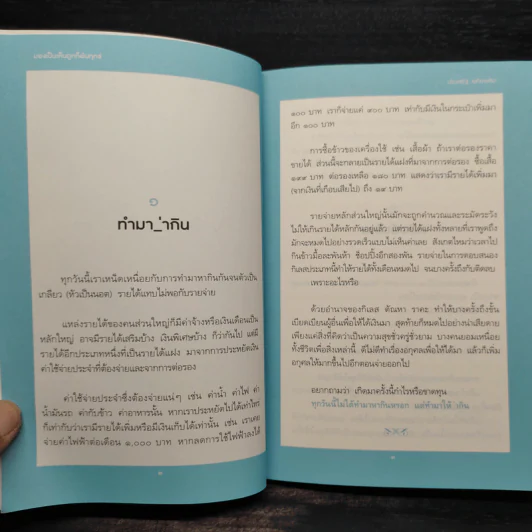 มองเป็นเห็นถูกก็พ้นทุกข์
๑
ทำมา_่ากิน
ทุกวันนี้เราเหน็ดเหนื่อยกับการทำมาหากินกันจนตัวเป็น
เกลียว (หัวเป็นนอต) รายได้แทบไม่พอกับรายจ่าย
แหล่งรายได้ของคนส่วนใหญ่ก็มีค่าจ้างหรือเงินเดือนเป็น
หลักใหญ่ อาจมีรายได้เสริมบ้าง เงินพิเศษบ้าง ก็ว่ากันไป แต่มี
รายได้อีกประเภทหนึ่งที่เป็นรายได้แฝง มาจากการประหยัดเงิน
ค่าใช้จ่ายประจำที่ต้องจ่ายและจากการต่อรอง
ค่าใช้จ่ายประจำซึ่งต้องจ่ายแน่ๆ เช่น ค่าน้ำ ค่าไฟ ค่า
น้ำมันรถ ค่ากับข้าว ค่าอาหารนั้น หากเราประหยัดไปได้เท่าไหร่
ก็เท่ากับว่าเรามีรายได้เพิ่มหรือมีเงินเก็บได้เท่านั้น เช่น เราเคย
จ่ายค่าไฟฟ้าต่อเดือน ๑,๐๐๐ บาท หากลดการใช้ไฟฟ้าลงได้
๑๐๐ บาท เราก็จ่ายแค่ ๙๐๐ บาท เท่ากับมีเงินในกระเป๋าเพิ่มมา
อีก ๑๐๐ บาท
การซื้อข้าวของเครื่องใช้ เช่น เสื้อผ้า ถ้าเราต่อรองราคา
ขายได้ ส่วนนี้จะกลายเป็นรายได้แฝงที่มาจากการต่อรอง ซื้อเสื้อ
๑๙๙ บาท ต่อรองเหลือ ๑๘๐ บาท แสดงว่าเรามีรายได้เพิ่มมา
(จากเงินที่เกือบเสียไป) ถึง ๑๙ บาท
รายจ่ายหลักส่วนใหญ่นั้นมักจะถูกคำนวณและระมัดระวัง
ไม่ให้เกินรายได้หลักกันอยู่แล้ว แต่รายได้แฝงทั้งหลายที่เราพูดถึง
มักจะหมดไปอย่างรวดเร็วแบบไม่เห็นค่าเลย สังเกตไหมว่าเวลาไป
กินข้าวมื้อละพันห้า ช็อปปิ้งอีกสองพัน รายจ่ายในการตอบสนอง
กิเลสประเภทนี้ทำให้รายได้ทั้งเดือนหมดไป จนบางครั้งถึงกับติดลบ
เพราะอะไรหรือ
ด้วยอำนาจของกิเลส ตัณหา ราคะ ทำให้บางครั้งถึงขั้น
เบียดเบียนผู้อื่นเพื่อให้ได้เงินมา สุดท้ายก็หมดไปอย่างน่าเสียดาย
เพียงแค่สิ่งที่คิดว่าเป็นความสุขชั่วครู่ชั่วยาม บางคนยอมเหนื่อย
ทั้งชีวิตเพื่อสิ่งเหล่านี้ ดีไม่ดีทำเรื่องอกุศลเพื่อให้ได้มา แล้วก็เพิ่ม
อกุศลให้มากขึ้นไปอีกตอนจ่ายออกไป
อยากถามว่า เกิดมาครั้งนี้กำไรหรือขาดทุน
ทุกวันนี้ไม่ได้ทำมาหากินหรอก แต่ทำมาให้ _่ากิน